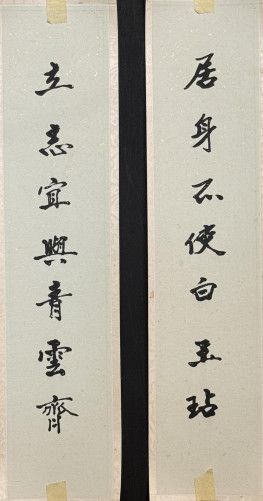 居身不使白玉玷
立志宜與青雲齊